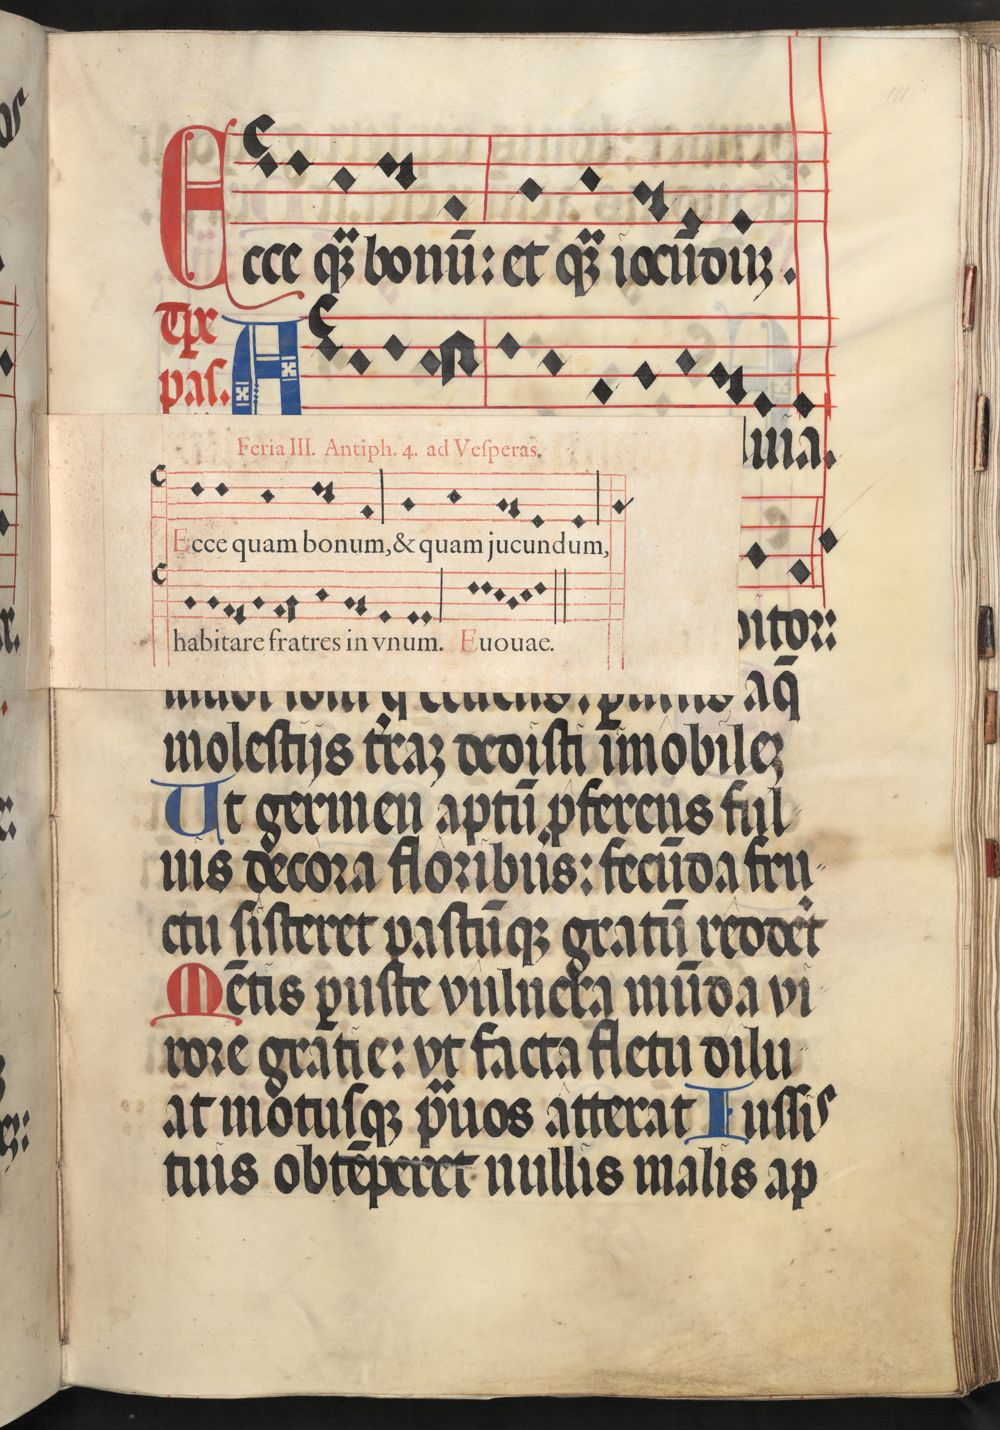 Ecce qͣ bonū: et qͣ iocūdūʒ.
Tp̄e
pas.
A
luia.
Feria III. Antiph. 4. ad Veſperas.
Ecce quam bonum, & quam jucundum,
habitare fratres in vnum. Euouae.
ditor:
aq̄
moleſtijs t̄raʒ dediſti īmobileʒ
Ut germen aptū ꝓferens ful
uis decora floribus: fecūda fru
ctu ſiſteret paſtūqʒ gratū redder̄t
Mētis ꝑuſte vulnera mūda vi
rore gratie: vt facta fletu dilu
at motuſqʒ p̄uos atterat Iuſſis
tuis obtēperet nullis malis ap